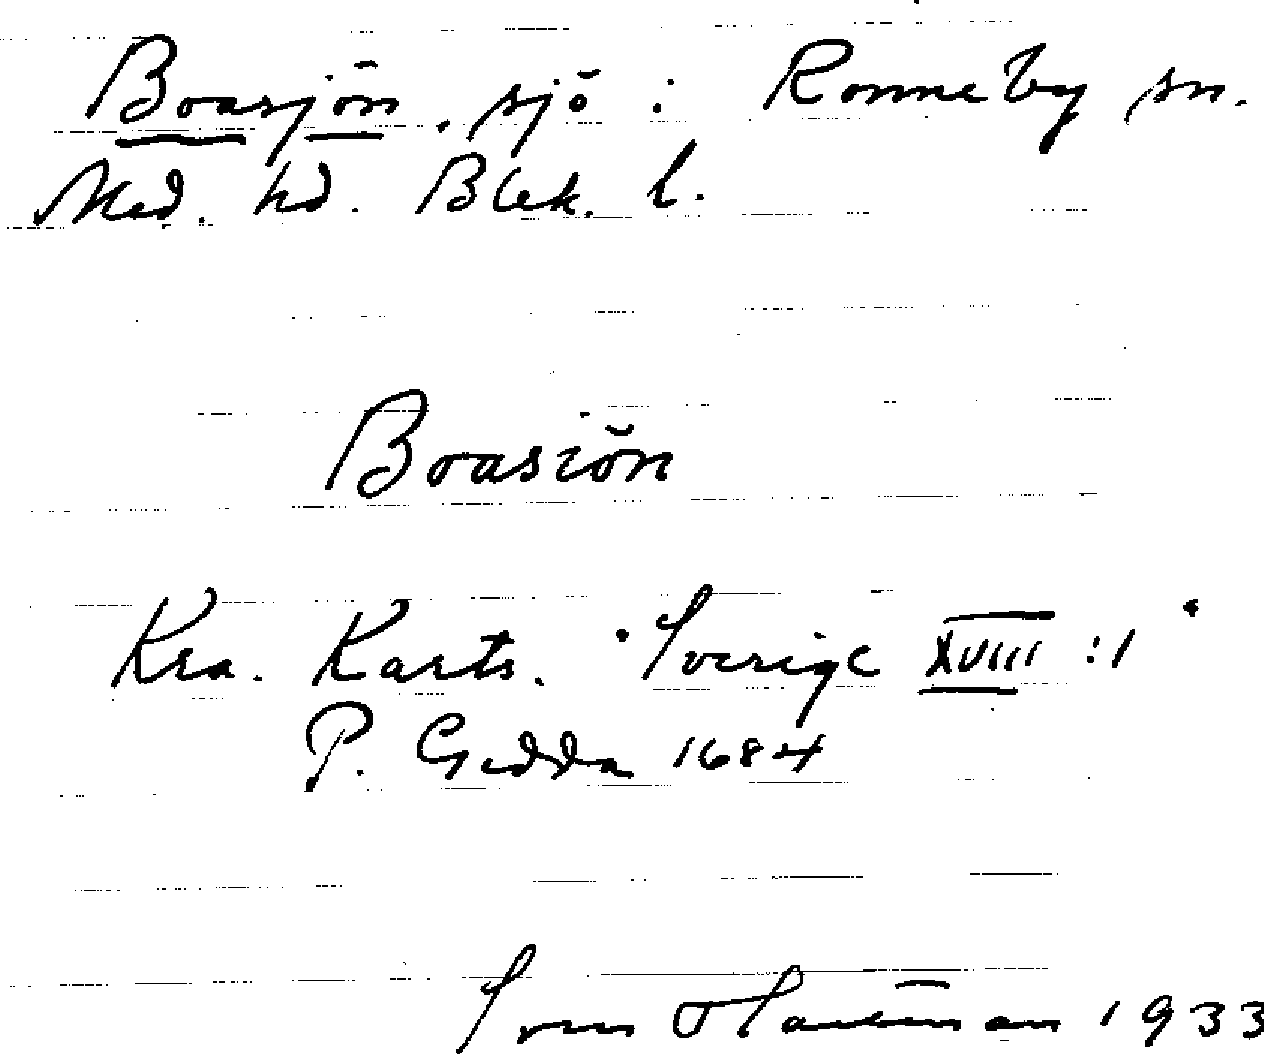 Boasjön, sjö: Ronneby sn.
Med. hd. Blek. l.
Boasiön
Kra. Kartv. "Sverige XVIIII:1"
P. Gedda 1684
Sven 1933